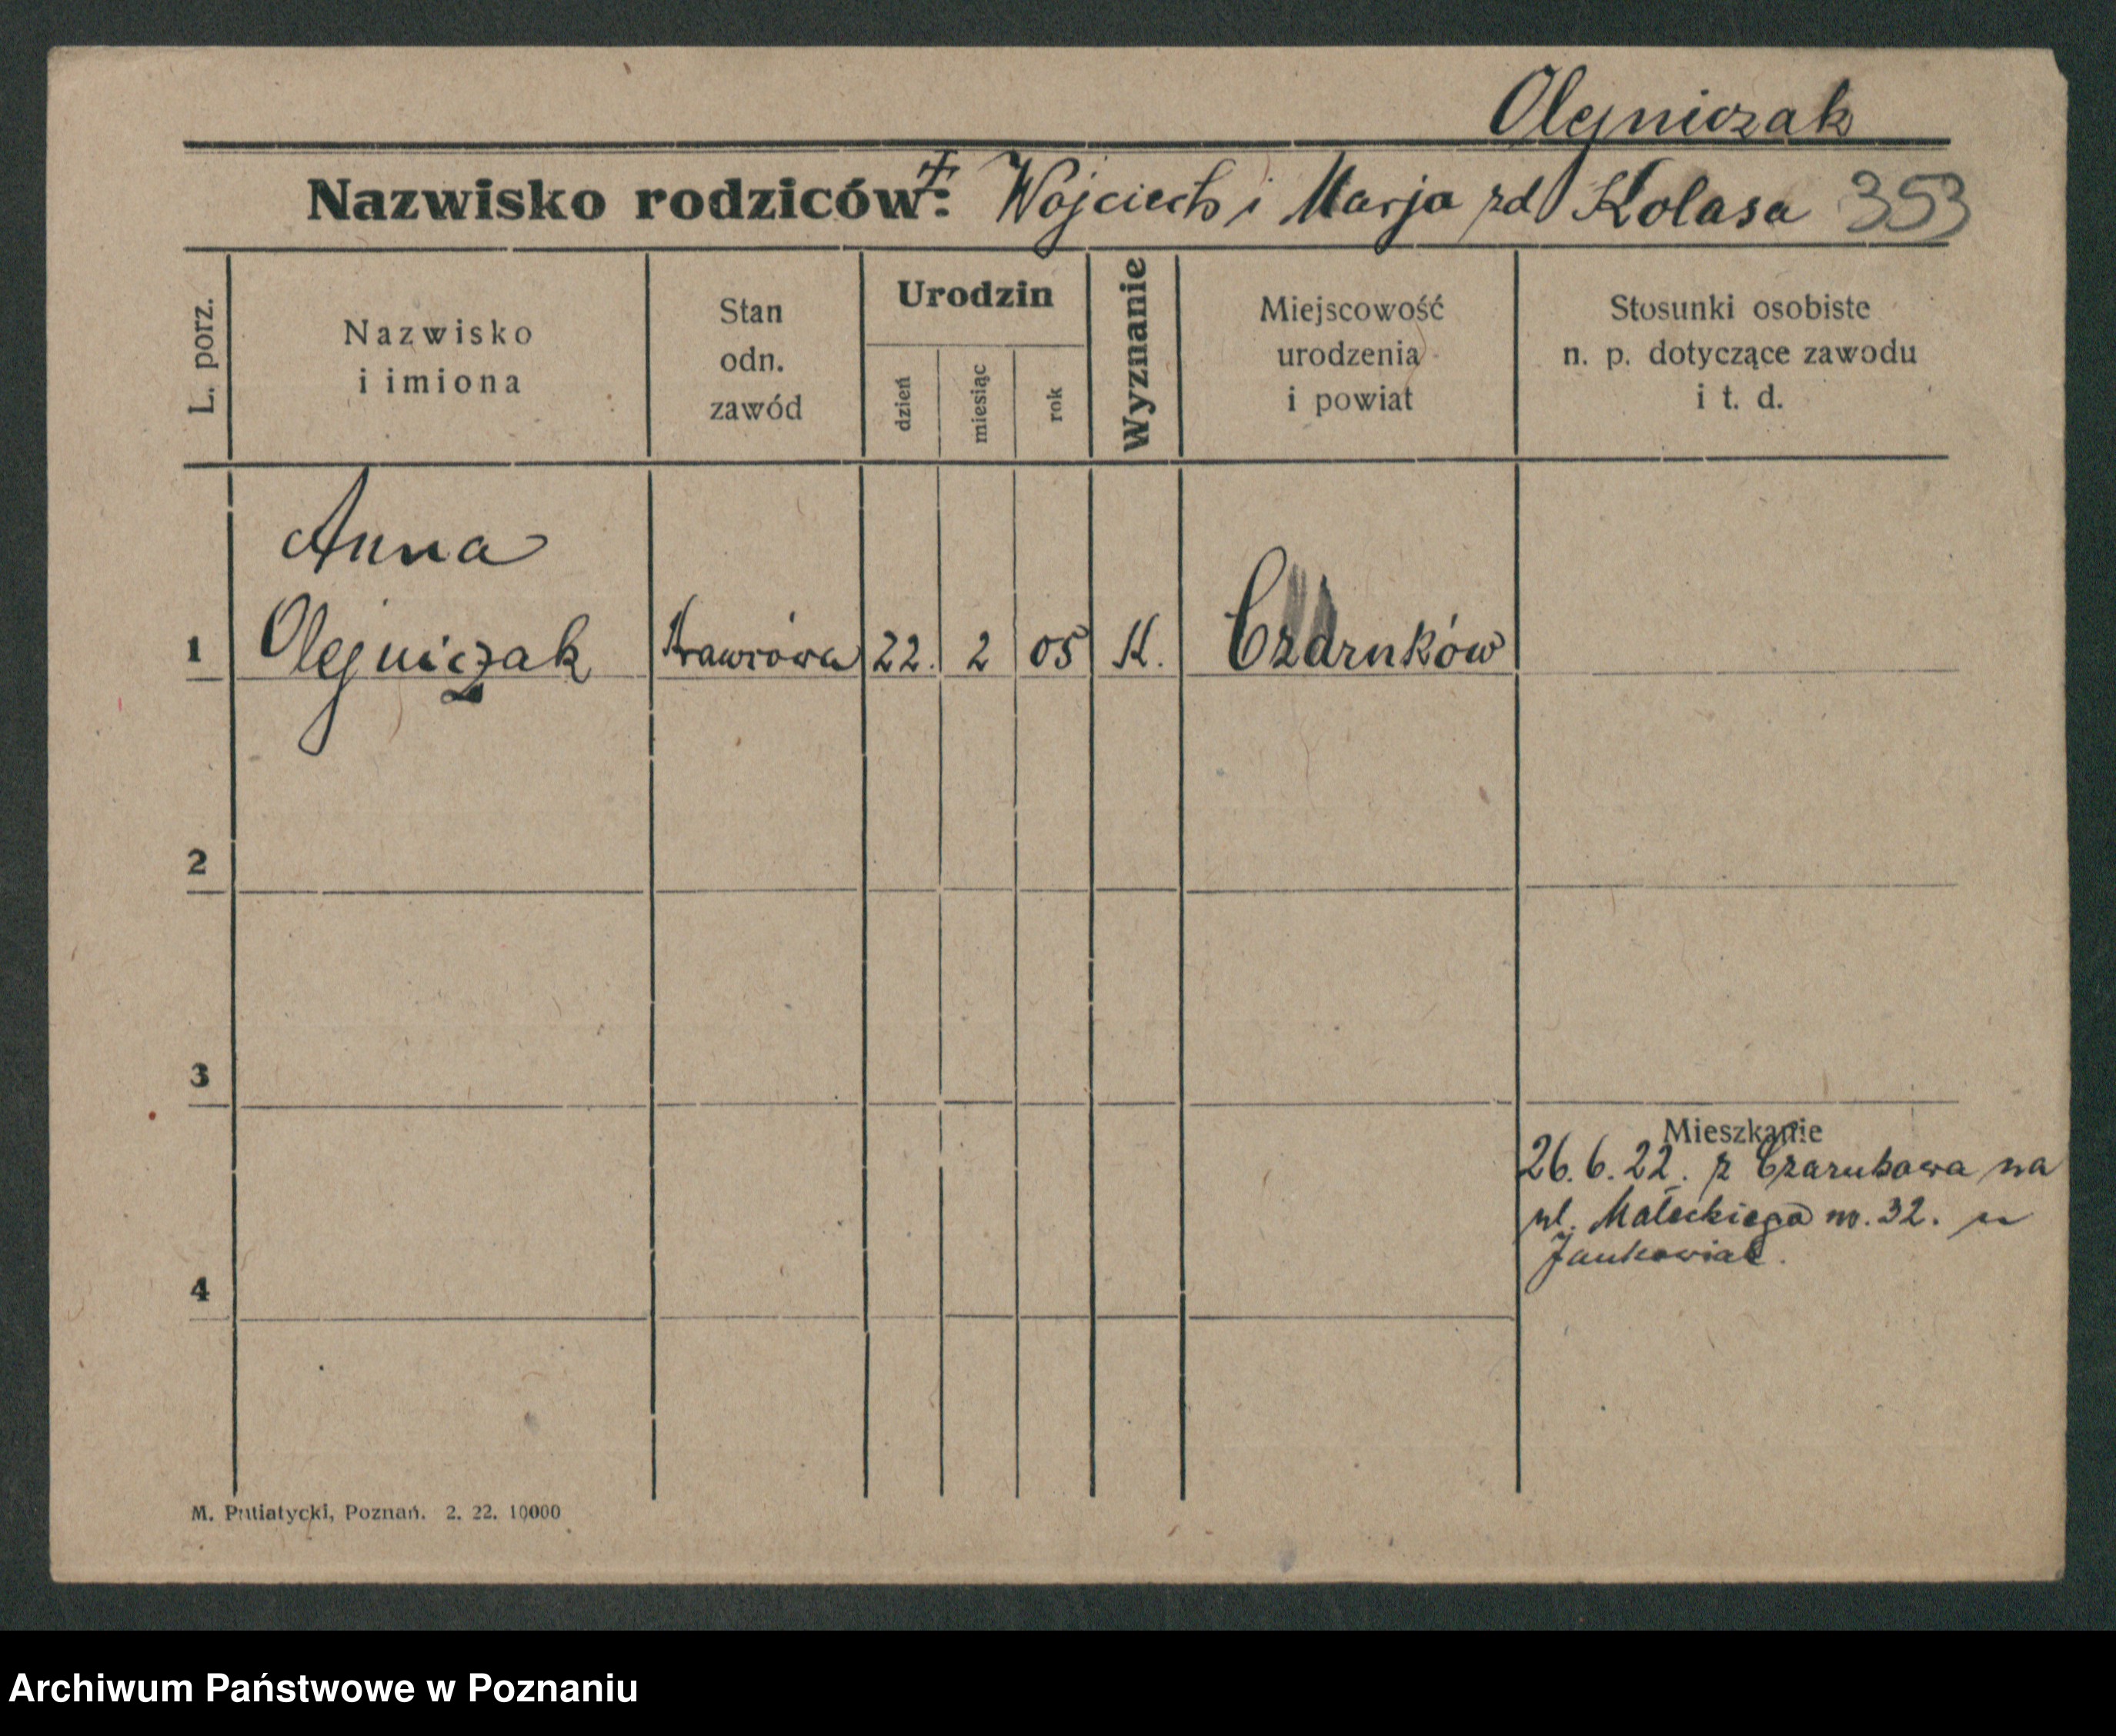 Olejniczak
Nazwisko rodziców: Wojciech i Marja zd Kolasa 353
L. porz.
Nazwisko
i imiona
Stan
odn.
zawód
Urodzin
dzień
miesiąc
rok
Wyznanie
Miejscowość
urodzenia
i powiat
Stosunki osobiste
n. p. dotyczące zawodu
i t. d.
Anna
1 Olejniczak Krawcowa 22. 2 05 K. Czarnków
2
3
Mieszkanie
26. 6. 22. z Czarnkowa na
ul. Małeckiego nr. 32. u
Jankowiak.
4
M. Putiatycki, Poznań. 2. 22. 10000
Archiwum Państwowe w Poznaniu